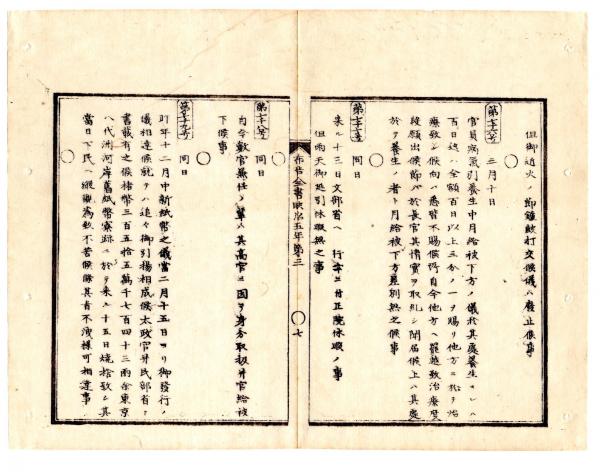 但御近火ノ節鐘鼓打交候儀ハ廢止候事
〇
第七十六号
三月十日
官員病氣引養生中月給被下方ノ儀於其處養生スレハ
百日迄ハ全額百日以上三分ノ一ヲ賜リ他方ニ於テ治
療致シ候向ハ悉皆不賜候得自今他方ヘ罷越致治療度
段願出候節ハ於長官其情實ヲ取糺シ聞届候上ハ其處
於テ養生ノ者ト月給被下方差別無之候事
〇
第七十七号
同日
來ル十三日文部省ヘ
行幸ニ付正院休暇ノ事
但雨天御延引休暇無之事
布告全書 壬申 五年 第三
〇七
第七十八号
同日
自今數官兼任ノ輩ハ其高官ニ因テ身分取扱并官給被
下候事
〇
第七十九号
同日
昨年十二月中新紙幣之儀當二月十五日ヨリ御發行ノ
儀相達候就テハ追々御引揚相成候太政官并民部省ヨリ
書載有之候楮幣三百五拾五萬千七百四十三兩余東京
八代洲河岸舊紙幣寮跡ニ於テ來ル十五日燒捨致シ其
當日下民ヘ縦觀為致不苦候條其旨不洩様可相達事
〇